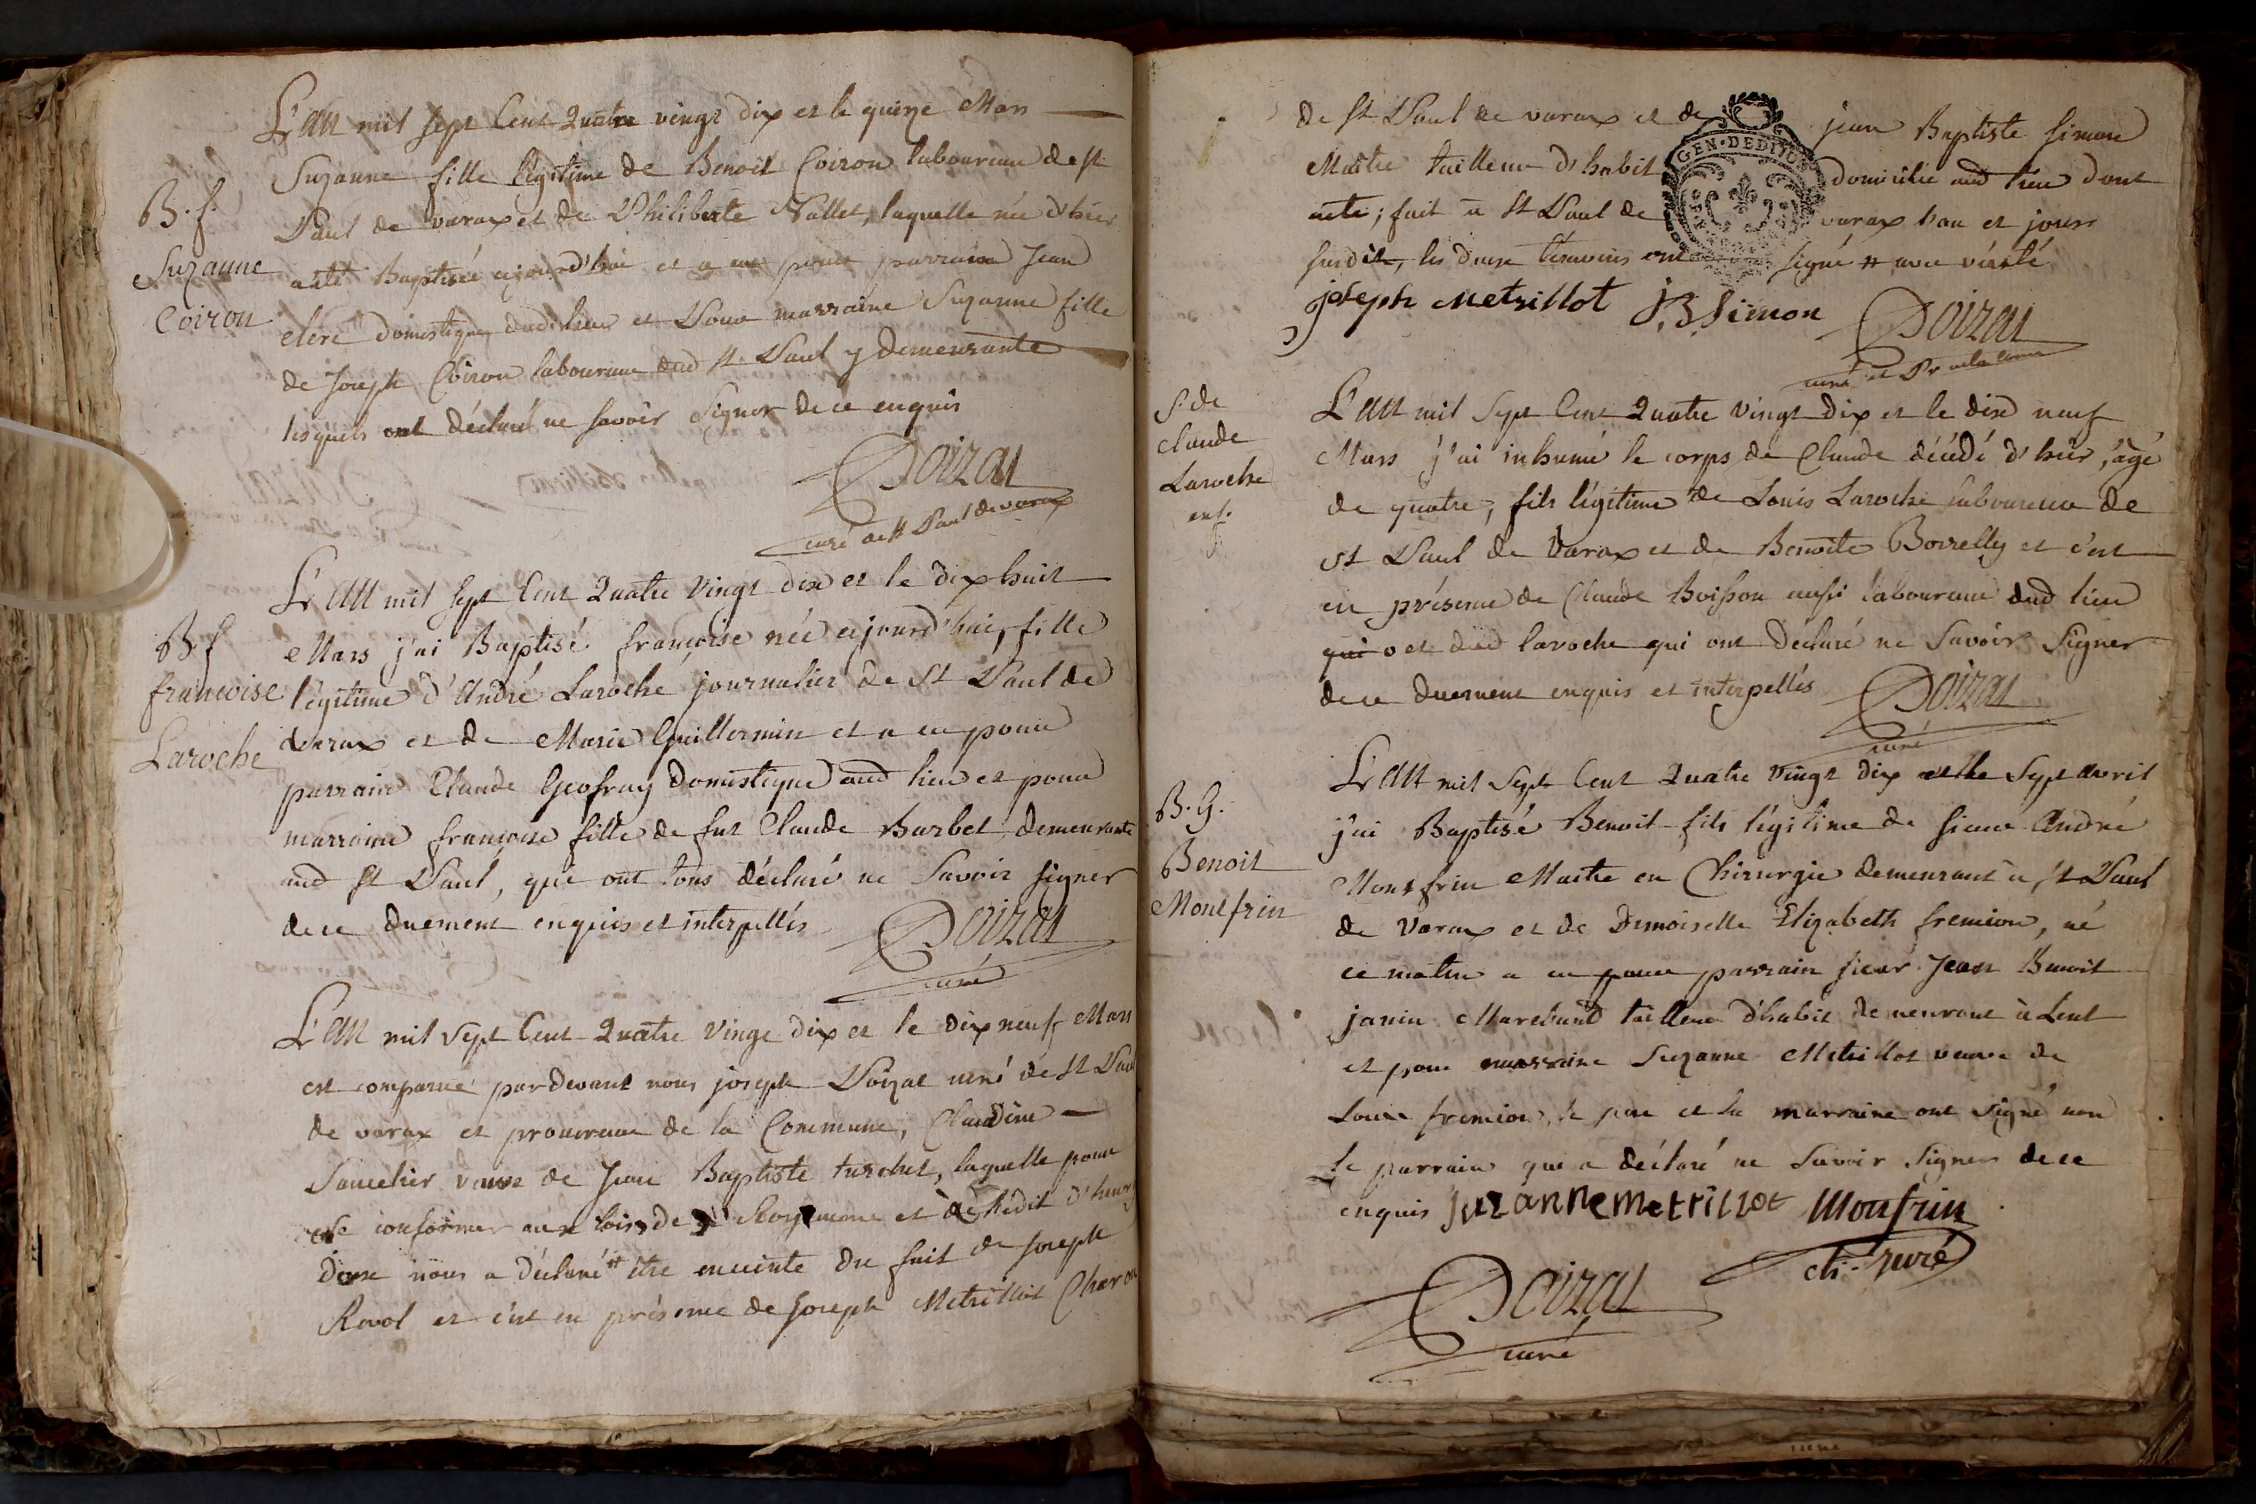 L'an mil sept Cent Quatre vingt dix et le quinze Mars
Suzanne fille légitime de Benoit Coiron laboureur de st
Paul de varax et de Philiberte Nallet, laquelle née d'hier
a été Baptisée ajourd'hui et a eu pour parrain Jean
clerc domestique dud. lieu et Pour marraine Suzanne fille
de Joseph Coiron laboureur dud st Paul y demeurante
lesquels ont déclaré ne savoir Signer de ce enquis
Poizat
curé de st Paul de varax
B. f.
Suzanne
Coiron
L'an mil sept Cent Quatre vingt dix et le dix huit
Mars j'ai Baptisé françoise née ajourd'hui, fille
légitime d'André Laroche journalier de St Paul de
varax et de Marie Guillermin et a eu pour
parrain Claude Geofray Domestique aud lieu et pour
marraine françoise fille de fut Claude Barbet demeurante
aud St Paul, qui ont tous déclaré ne Savoir signer
de ce duement enquis et interpellés
Poizat
curé
B. f
francoise
Laroche
L'an mil sept Cent Quatre vingt dix et le dix neuf Mars
est comparue pardevant nous joseph Poizat curé de St Paul
de varax et procureur de la Commune, Claudine
veuve de Jean Baptiste turchet, laquelle pour
se conformer aux loix de Royaume et à l'Edit d'henry
deux nous a déclaré # être enceinte du fait de Joseph
Revol et c'est en présence de Joseph Metrillot Charon
de St Paul de varax et de jean Baptiste Simon
Maître tailleur d'habit domicilié aud lieu dont
acte; fait à St Paul de varax l'an et jours
susdit, les deux témoins ont signé # avec vérité
GEN. DE DIJON
joseph metrillot J.B. Simon Poizat
curé et Pr de la Comm
S. de
Claude
Laroche
enf.
L'an mil sept Cent Quatre vingt dix et le dix neuf
Mars j'ai inhumé le corps de Claude décédé d'hier, âgé
de quatre, fils légitime de Louis Laroche laboureur de
st Paul de varax et de Benoite Borrelly et c'est
en présence de Claude Boisson aussi laboureur dud lieu
qui et dud laroche qui ont déclaré ne Savoir Signer
de ce duement enquis et interpellés Poizat
curé
B. G.
Benoit
Montfrin
L'an mil sept Cent Quatre vingt dix et le sept avril
j'ai Baptisé Benoit fils légitime de sieur André
Montfrin Maitre en Chirurgie demeurant à st Paul
de varax et de Demoiselle Elizabeth fremion, né
ce matin a eu pour parrain sieur Jean Benoit
janin Marchand tailleur d'habit demeurant à Lent
et pour marraine Suzanne Metrillot veuve de
Louis fremion, le pere et la marraine ont signé non
le parrain qui a déclaré ne Savoir Signer de ce
enquis suzanne metrillot Monfrin
ch. juré
Poizat
curé